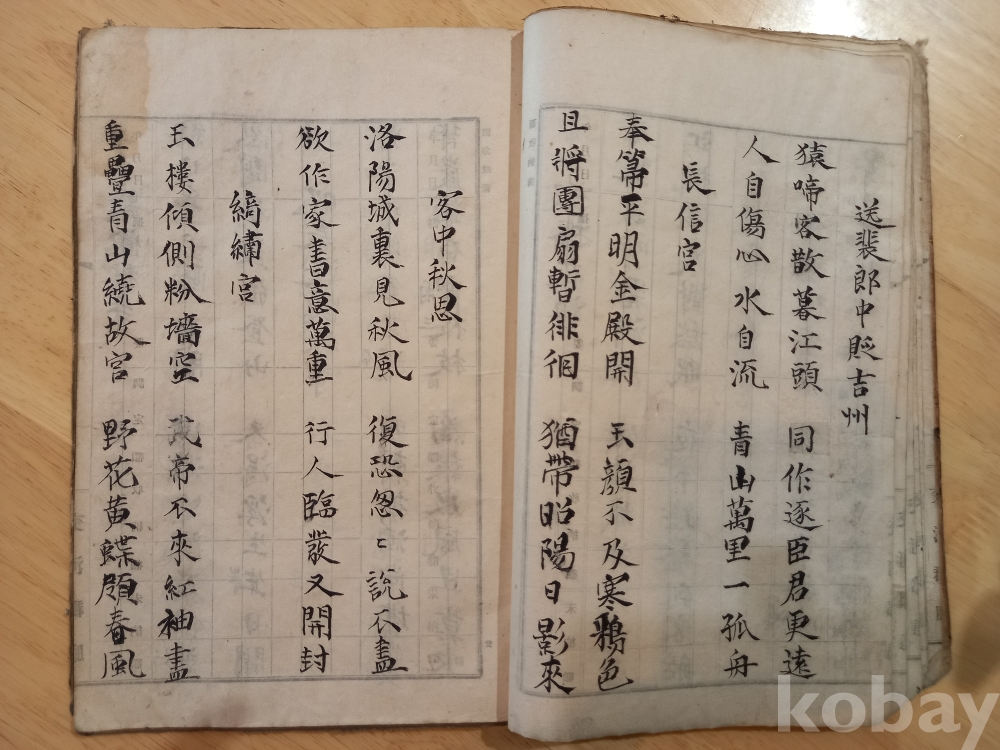 送裴郎中貶吉州
猿啼客散暮江頭
人自傷心水自流
同作逐臣君更遠
青山萬里一孤舟
長信宮
奉箒平明金殿開
且將團扇暫徘徊
玉顔不及寒鴉色
猶帶昭陽日影來
客中秋思
洛陽城裏見秋風
欲作家書意萬重
復恐怱〻說不盡
行人臨發又開封
縞繡宮
玉樓傾側粉墻空
重疊青山繞故宮
武帝不來紅袖盡
野花黄蝶領春風
kobay